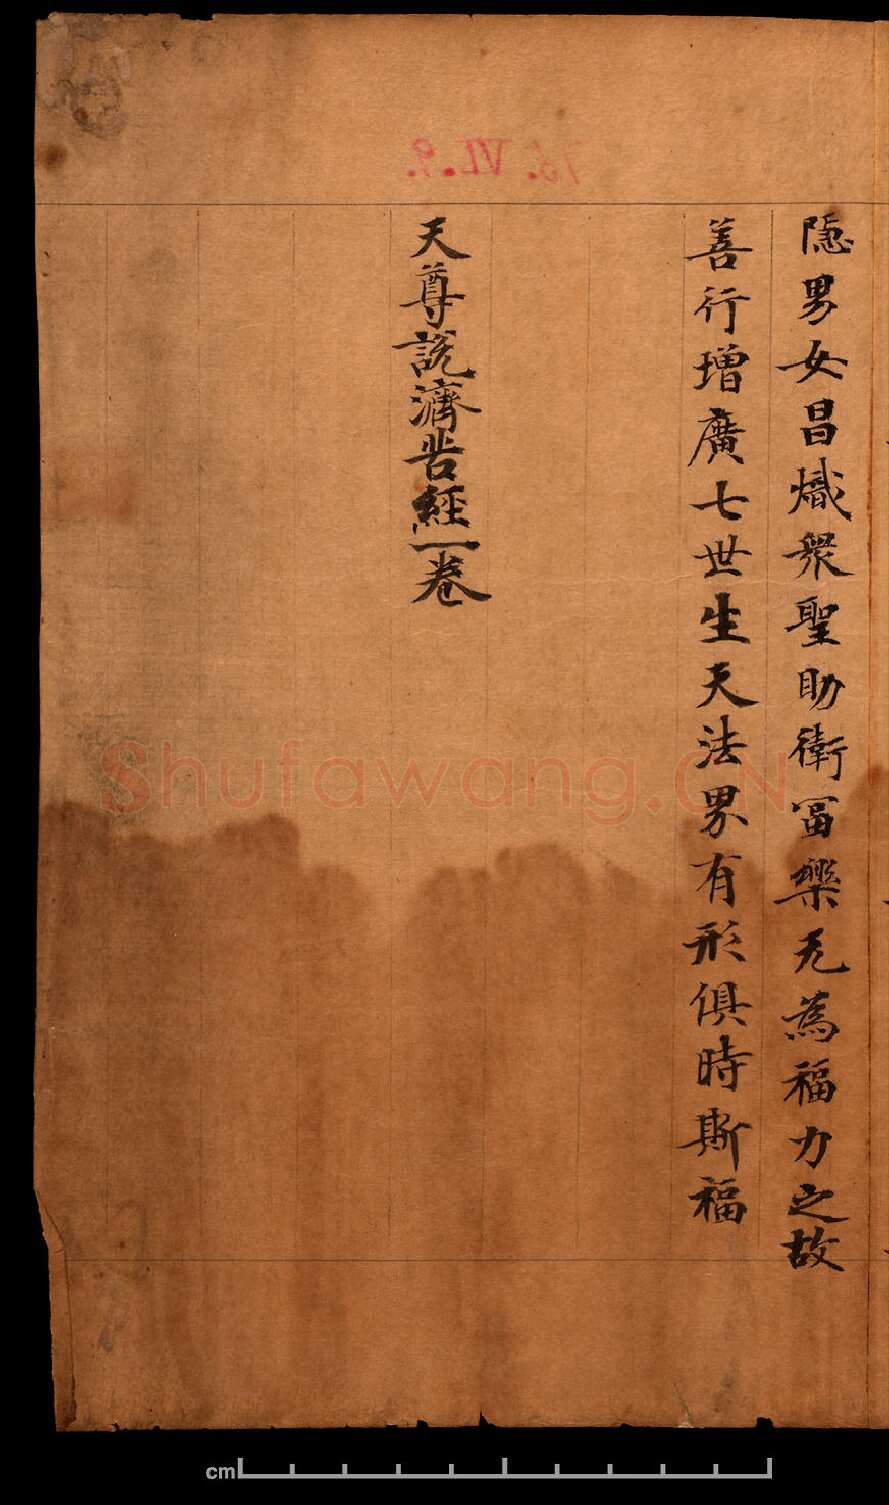 隱男女昌熾衆聖助衛冨樂无為福力之故
善行增廣七世生天法界有形俱時斯福
天尊説濟苦經一卷
76.VI.9.
Shufawang.CN
cm